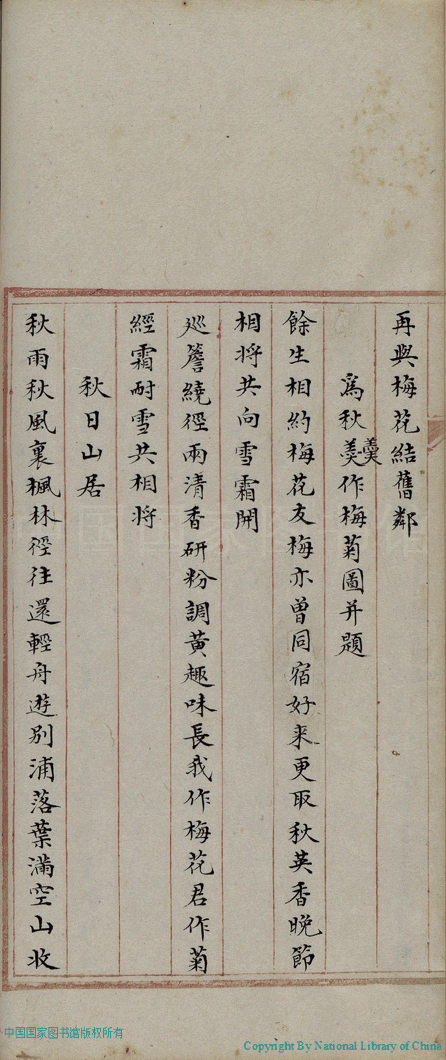 再與梅花結舊鄰
為秋羹作梅菊圖并題
羹
餘生相約梅花友梅亦曾同宿好來更取秋英香晚節
相將共向雪霜開
巡簷繞徑兩清香研粉調黃趣味長我作梅花君作菊
經霜耐雪共相將
秋日山居
秋雨秋風裏楓林徑往還輕舟遊別浦落葉滿空山收
中国国家图书馆版权所有
Copyright By National Library of China